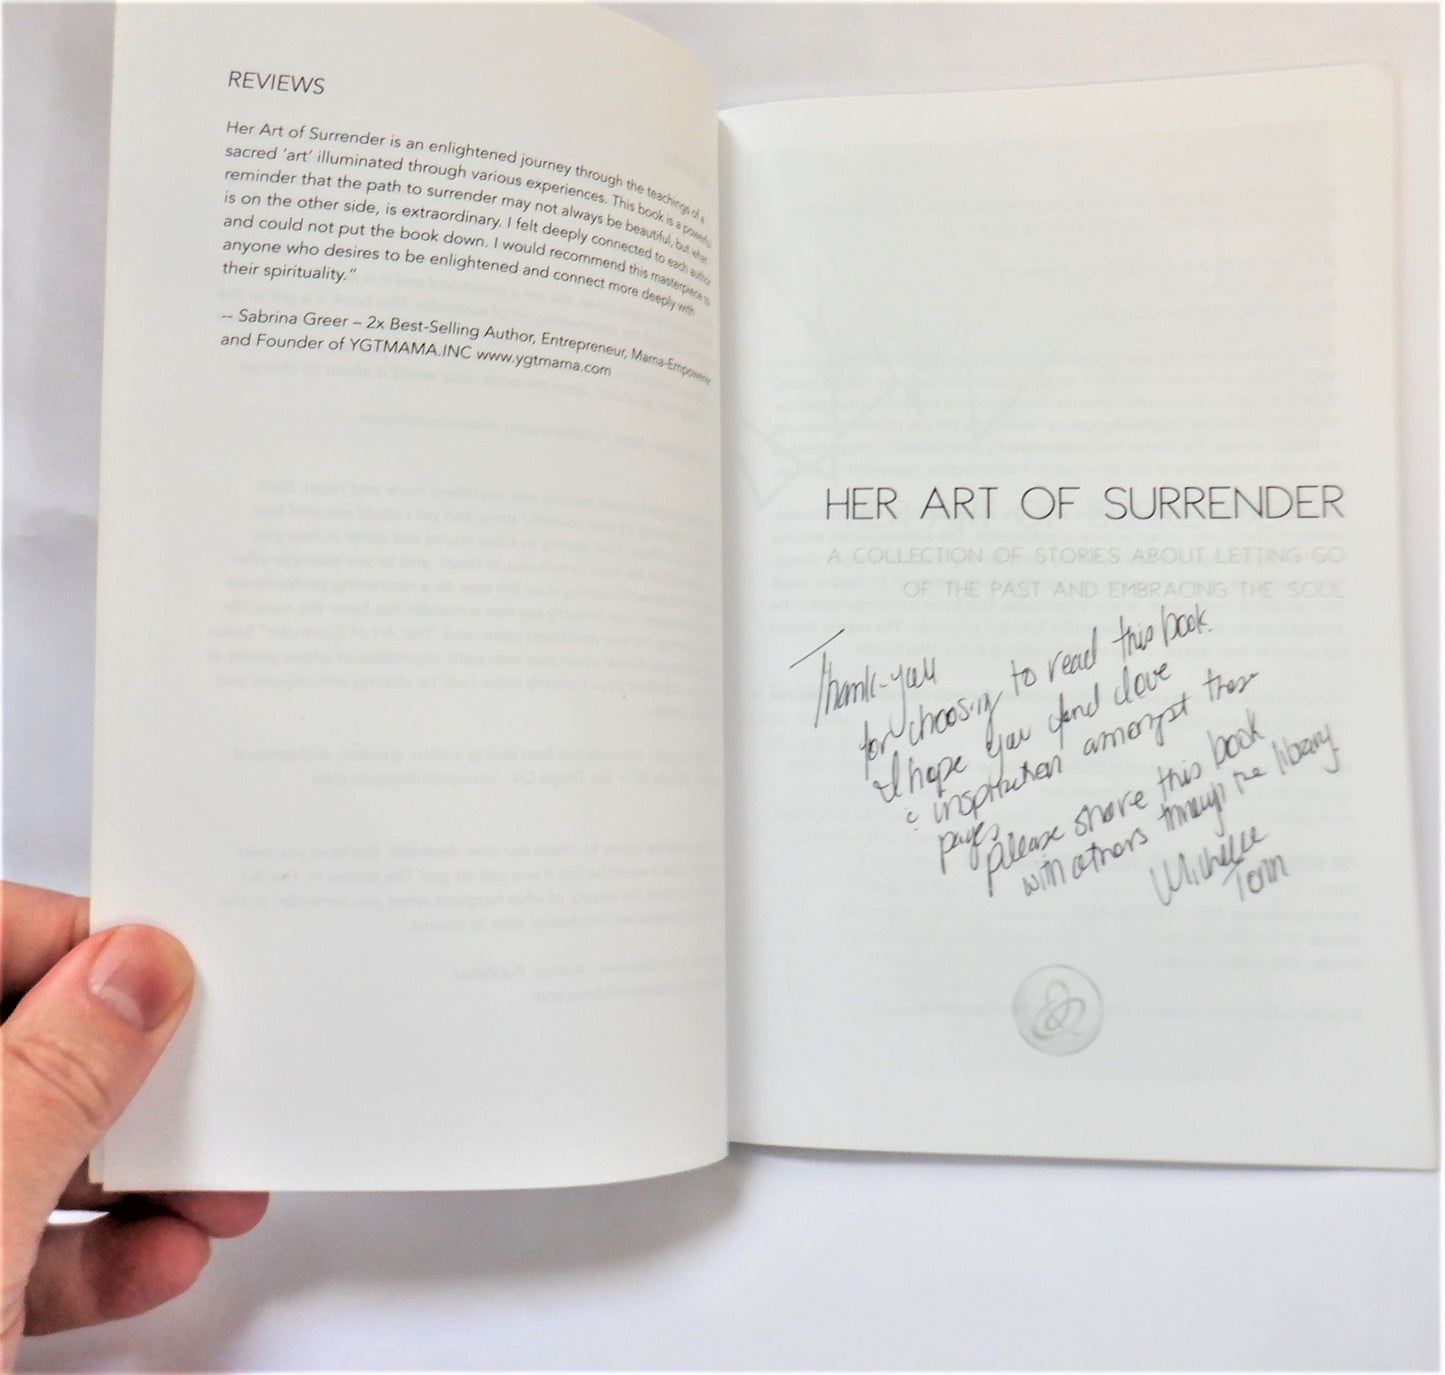 REVIEWS
Her Art of Surrender is an enlightened journey through the teachings of a
sacred 'art' illuminated through various experiences. This book is a powerful
reminder that the path to surrender may not always be beautiful, but what
is on the other side, is extraordinary. I felt deeply connected to each author
and could not put the book down. I would recommend this masterpiece to
anyone who desires to be enlightened and connect more deeply with
their spirituality."
-- Sabrina Greer – 2x Best-Selling Author, Entrepreneur, Mama-Empowerer
and Founder of YGTMAMA.INC www.ygtmama.com
HER ART OF SURRENDER
A COLLECTION OF STORIES ABOUT LETTING GO
OF THE PAST AND EMBRACING THE SOUL
Thank-you
for choosing to read this book.
I hope you find love
& inspiration amongst these
pages
Please share this book
with others through the library.
Michelle